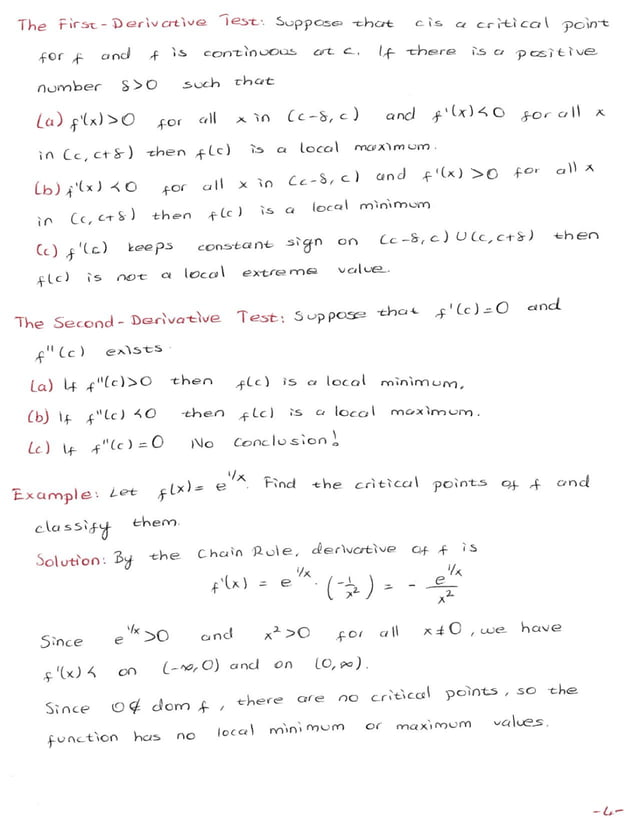 The First-Derivative Test: Suppose that c is a critical point
for f and f is continuous at c. If there is a positive
number δ>0 such that
(a) f'(x)>0 for all x in (c-δ, c) and f'(x)<0 for all x
in (c, c+δ) then f(c) is a local maximum.
(b) f'(x)<0 for all x in (c-δ, c) and f'(x)>0 for all x
in (c, c+δ) then f(c) is a local minimum
(c) f'(c) keeps constant sign on (c-δ, c) ∪ (c, c+δ) then
f(c) is not a local extreme value.
The Second-Derivative Test: Suppose that f'(c)=0 and
f''(c) exists.
(a) If f''(c)>0 then f(c) is a local minimum,
(b) If f''(c)<0 then f(c) is a local maximum.
(c) If f''(c)=0 No Conclusion!
Example: Let f(x)= e^{1/x}. Find the critical points of f and
classify them.
Solution: By the Chain Rule, derivative of f is
f'(x) = e^{1/x} · (-1/x²) = - e^{1/x}/x²
Since e^{1/x}>0 and x²>0 for all x≠0, we have
f'(x)< on (-∞,0) and on (0,∞).
Since 0∉ dom f, there are no critical points, so the
function has no local minimum or maximum values.
-4-